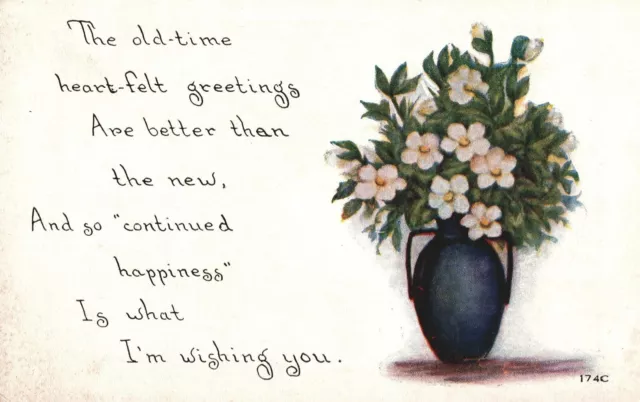 The old-time
heart-felt greetings
Are better than
the new,
And so "continued
happiness"
Is what
I'm wishing you.
174C